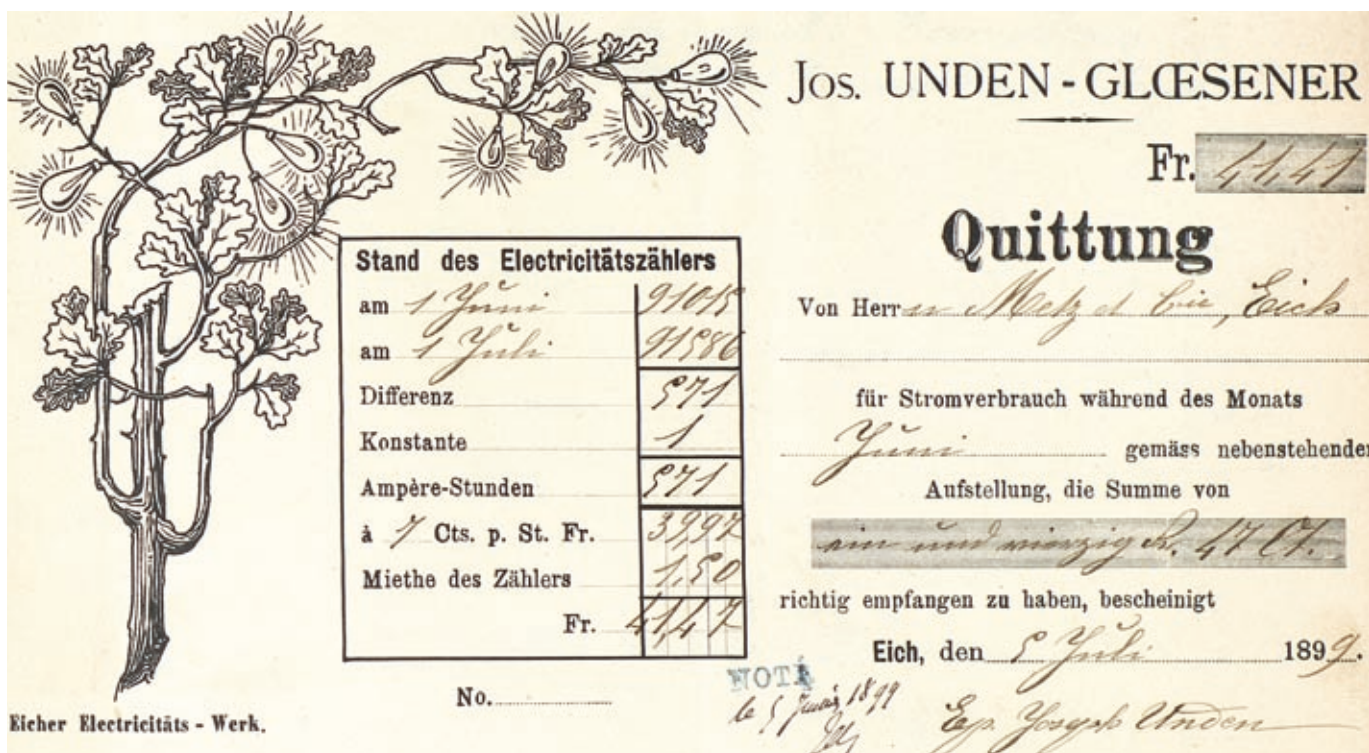 Jos. UNDEN - GLŒSENER
Fr. 41,47
Quittung
Von Herrn Metz et Cie, Eich
für Stromverbrauch während des Monats
Juni gemäss nebenstehender
Aufstellung, die Summe von
ein und vierzig Fr. 47 Ct.
richtig empfangen zu haben, bescheinigt
Eich, den 5 Juli 1899.
Ep. Joseph Unden
Stand des Electricitätszählers
am 1 Juni 91015
am 1 Juli 91586
Differenz 571
Konstante 1
Ampère-Stunden 571
à 7 Cts. p. St. Fr. 39,97
Miethe des Zählers 1,50
Fr. 41,47
No.
NOTÉ
le 5 1899
Eicher Electricitäts - Werk.